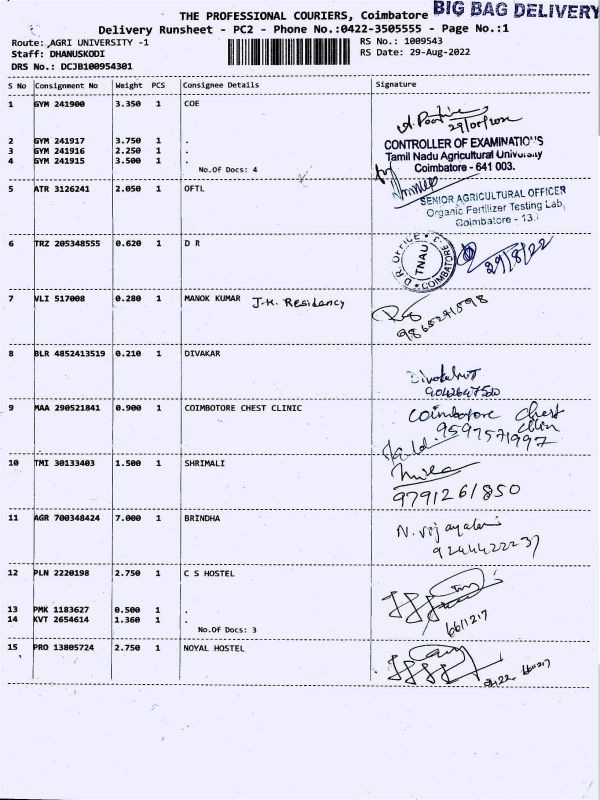 BIG BAG DELIVERY
THE PROFESSIONAL COURIERS, Coimbatore
Delivery Runsheet - PC2 - Phone No.:0422-3505555 - Page No.:1
Route: ,AGRI UNIVERSITY -1 RS No.: 1009543
Staff: DHANUSKODI RS Date: 29-Aug-2022
DRS No.: DCJB100954301
S No Consignment No Weight PCS Consignee Details Signature
1 GYM 241900 3.350 1 COE
2 GYM 241917 3.750 1 .
3 GYM 241916 2.250 1 .
4 GYM 241915 3.500 1 .
No.Of Docs: 4
CONTROLLER OF EXAMINATIONS
Tamil Nadu Agricultural University
Coimbatore - 641 003.
5 ATR 3126241 2.050 1 OFTL
SENIOR AGRICULTURAL OFFICER
Organic Fertilizer Testing Lab,
Coimbatore - 13.
6 TRZ 205348555 0.620 1 D R
D. R. OFFICE TNAU COIMBATORE
29/8/22
7 VLI 517008 0.280 1 MANOK KUMAR J.K. Residency
9865291598
8 BLR 4852413519 0.210 1 DIVAKAR
9 MAA 290521841 0.900 1 COIMBOTORE CHEST CLINIC
Coimbotore Chest
9597571997
10 TMI 30133403 1.500 1 SHRIMALI
9791261850
11 AGR 700348424 7.000 1 BRINDHA
9244422237
12 PLN 2220198 2.750 1 C S HOSTEL
6611217
13 PMK 1183627 0.500 1 .
14 KVT 2654614 1.360 1 .
No.Of Docs: 3
15 PRO 13805724 2.750 1 NOYAL HOSTEL